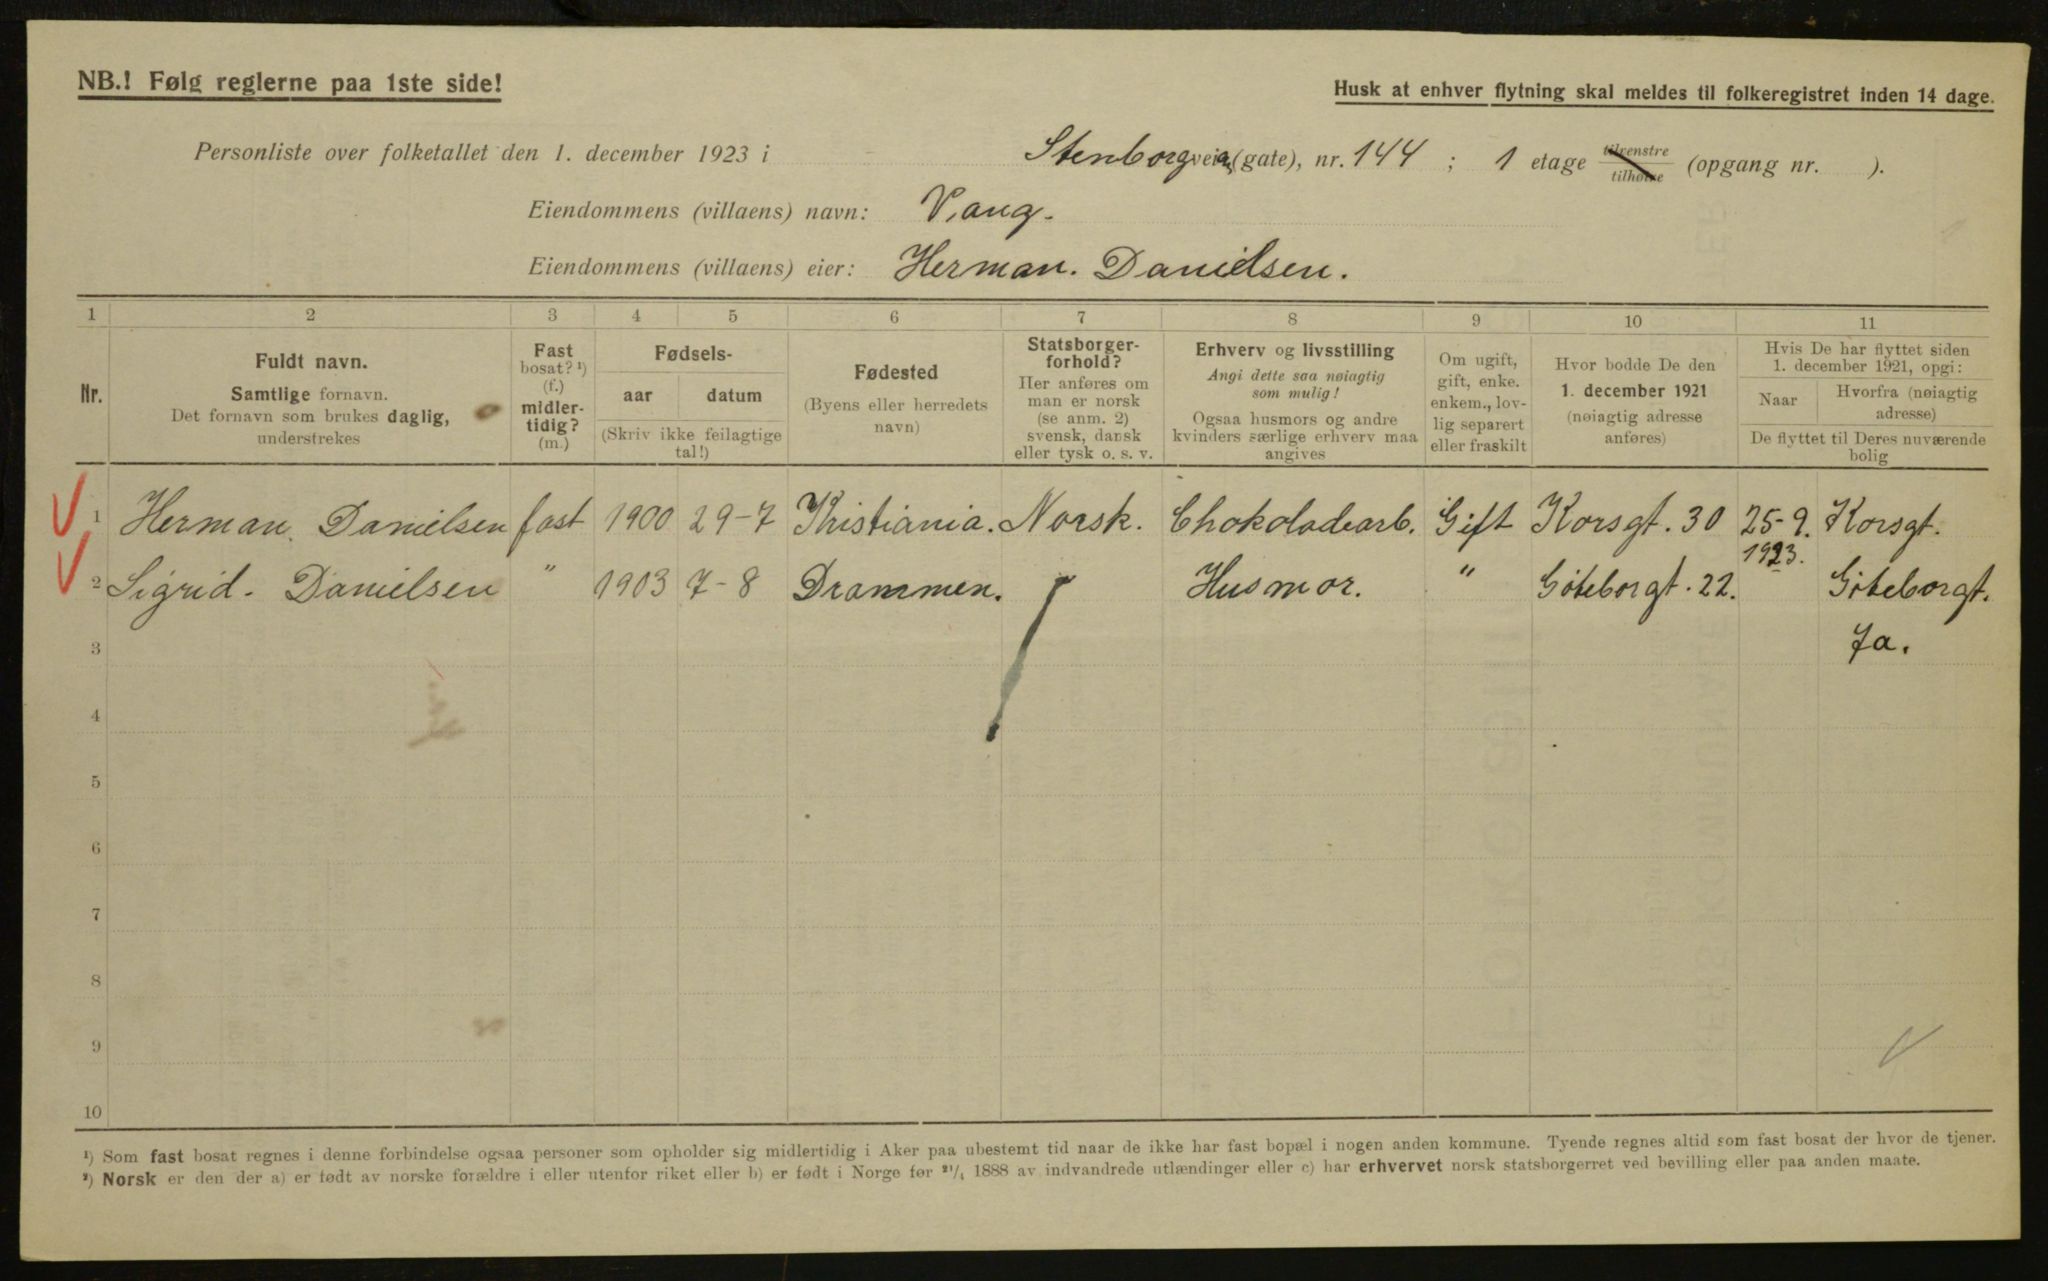 NB.! Følg reglerne paa 1ste side!
Husk at enhver flytning skal meldes til folkeregistret inden 14 dage.
Personliste over folketallet den 1. december 1923 i Stenborgveien (gate), nr. 144 ; 1 etage tilvenstre tilhøire (opgang nr. ).
Eiendommens (villaens) navn: Vang.
Eiendommens (villaens) eier: Herman. Danielsen.
1 2 3 4 5 6 7 8 9 10 11
Nr.
Fuldt navn.
Samtlige fornavn.
Det fornavn som brukes daglig,
understrekes
Fast
bosat? ¹)
(f.)
midler-
tidig?
(m.)
Fødsels-
aar datum
(Skriv ikke feilagtige
tal!)
Fødested
(Byens eller herredets
navn)
Statsborger-
forhold?
Her anføres om
man er norsk
(se anm. 2)
svensk, dansk
eller tysk o. s. v.
Erhverv og livsstilling
Angi dette saa nøiagtig
som mulig!
Ogsaa husmors og andre
kvinders særlige erhverv maa
angives
Om ugift,
gift, enke.
enkem., lov-
lig separert
eller fraskilt
Hvor bodde De den
1. december 1921
(nøiagtig adresse
anføres)
Hvis De har flyttet siden
1. december 1921, opgi:
Naar
Hvorfra (nøiagtig
adresse)
De flyttet til Deres nuværende
bolig
1 Herman. Danielsen fast 1900 29-7 Kristiania. Norsk. Chokoladearb. Gift Korsgt. 30 25-9. Korsgt.
1923.
2 Sigrid. Danielsen " 1903 7-8 Drammen. Husmor. " Göteborgt. 22. Göteborgt.
3 Ja.
4
5
6
7
8
9
10
¹) Som fast bosat regnes i denne forbindelse ogsaa personer som opholder sig midlertidig i Aker paa ubestemt tid naar de ikke har fast bopæl i nogen anden kommune. Tyende regnes altid som fast bosat der hvor de tjener.
²) Norsk er den der a) er født av norske forældre i eller utenfor riket eller b) er født i Norge før ²¹/₄ 1888 av indvandrede utlændinger eller c) har erhvervet norsk statsborgerret ved bevilling eller paa anden maate.